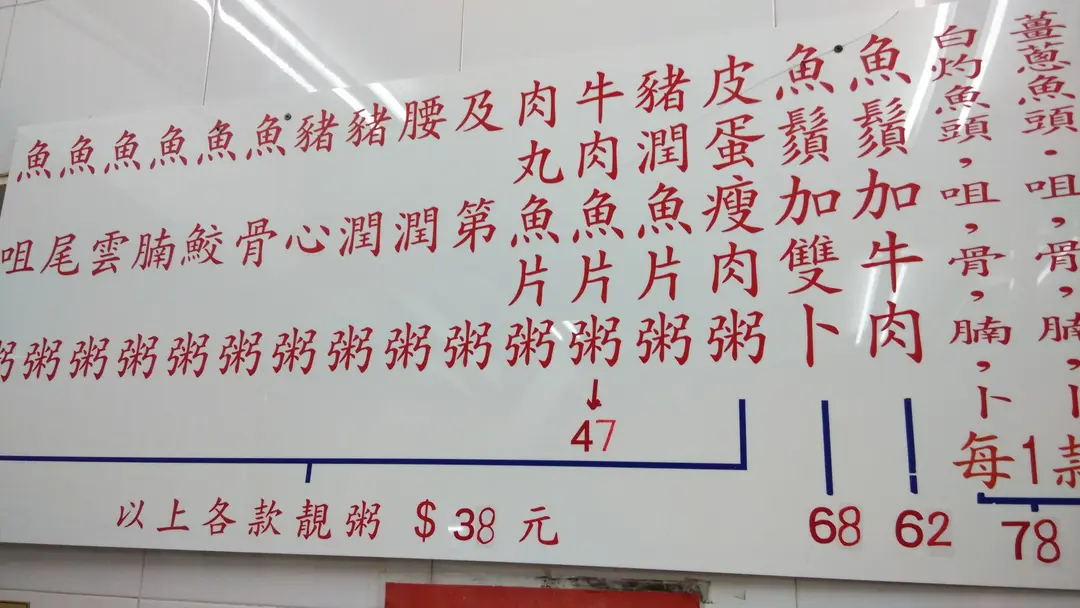 薑蔥魚頭·咀,骨,腩,卜
白灼魚頭,咀,骨,腩,卜
每1款
78
魚鬚加牛肉
62
魚鬚加雙卜
68
皮蛋瘦肉粥
豬潤魚片粥
牛肉魚片粥
47
肉丸魚片粥
及第粥
腰潤粥
豬潤粥
豬心粥
魚骨粥
魚鮫粥
魚腩粥
魚雲粥
魚尾粥
魚咀粥
以上各款靚粥 $38元